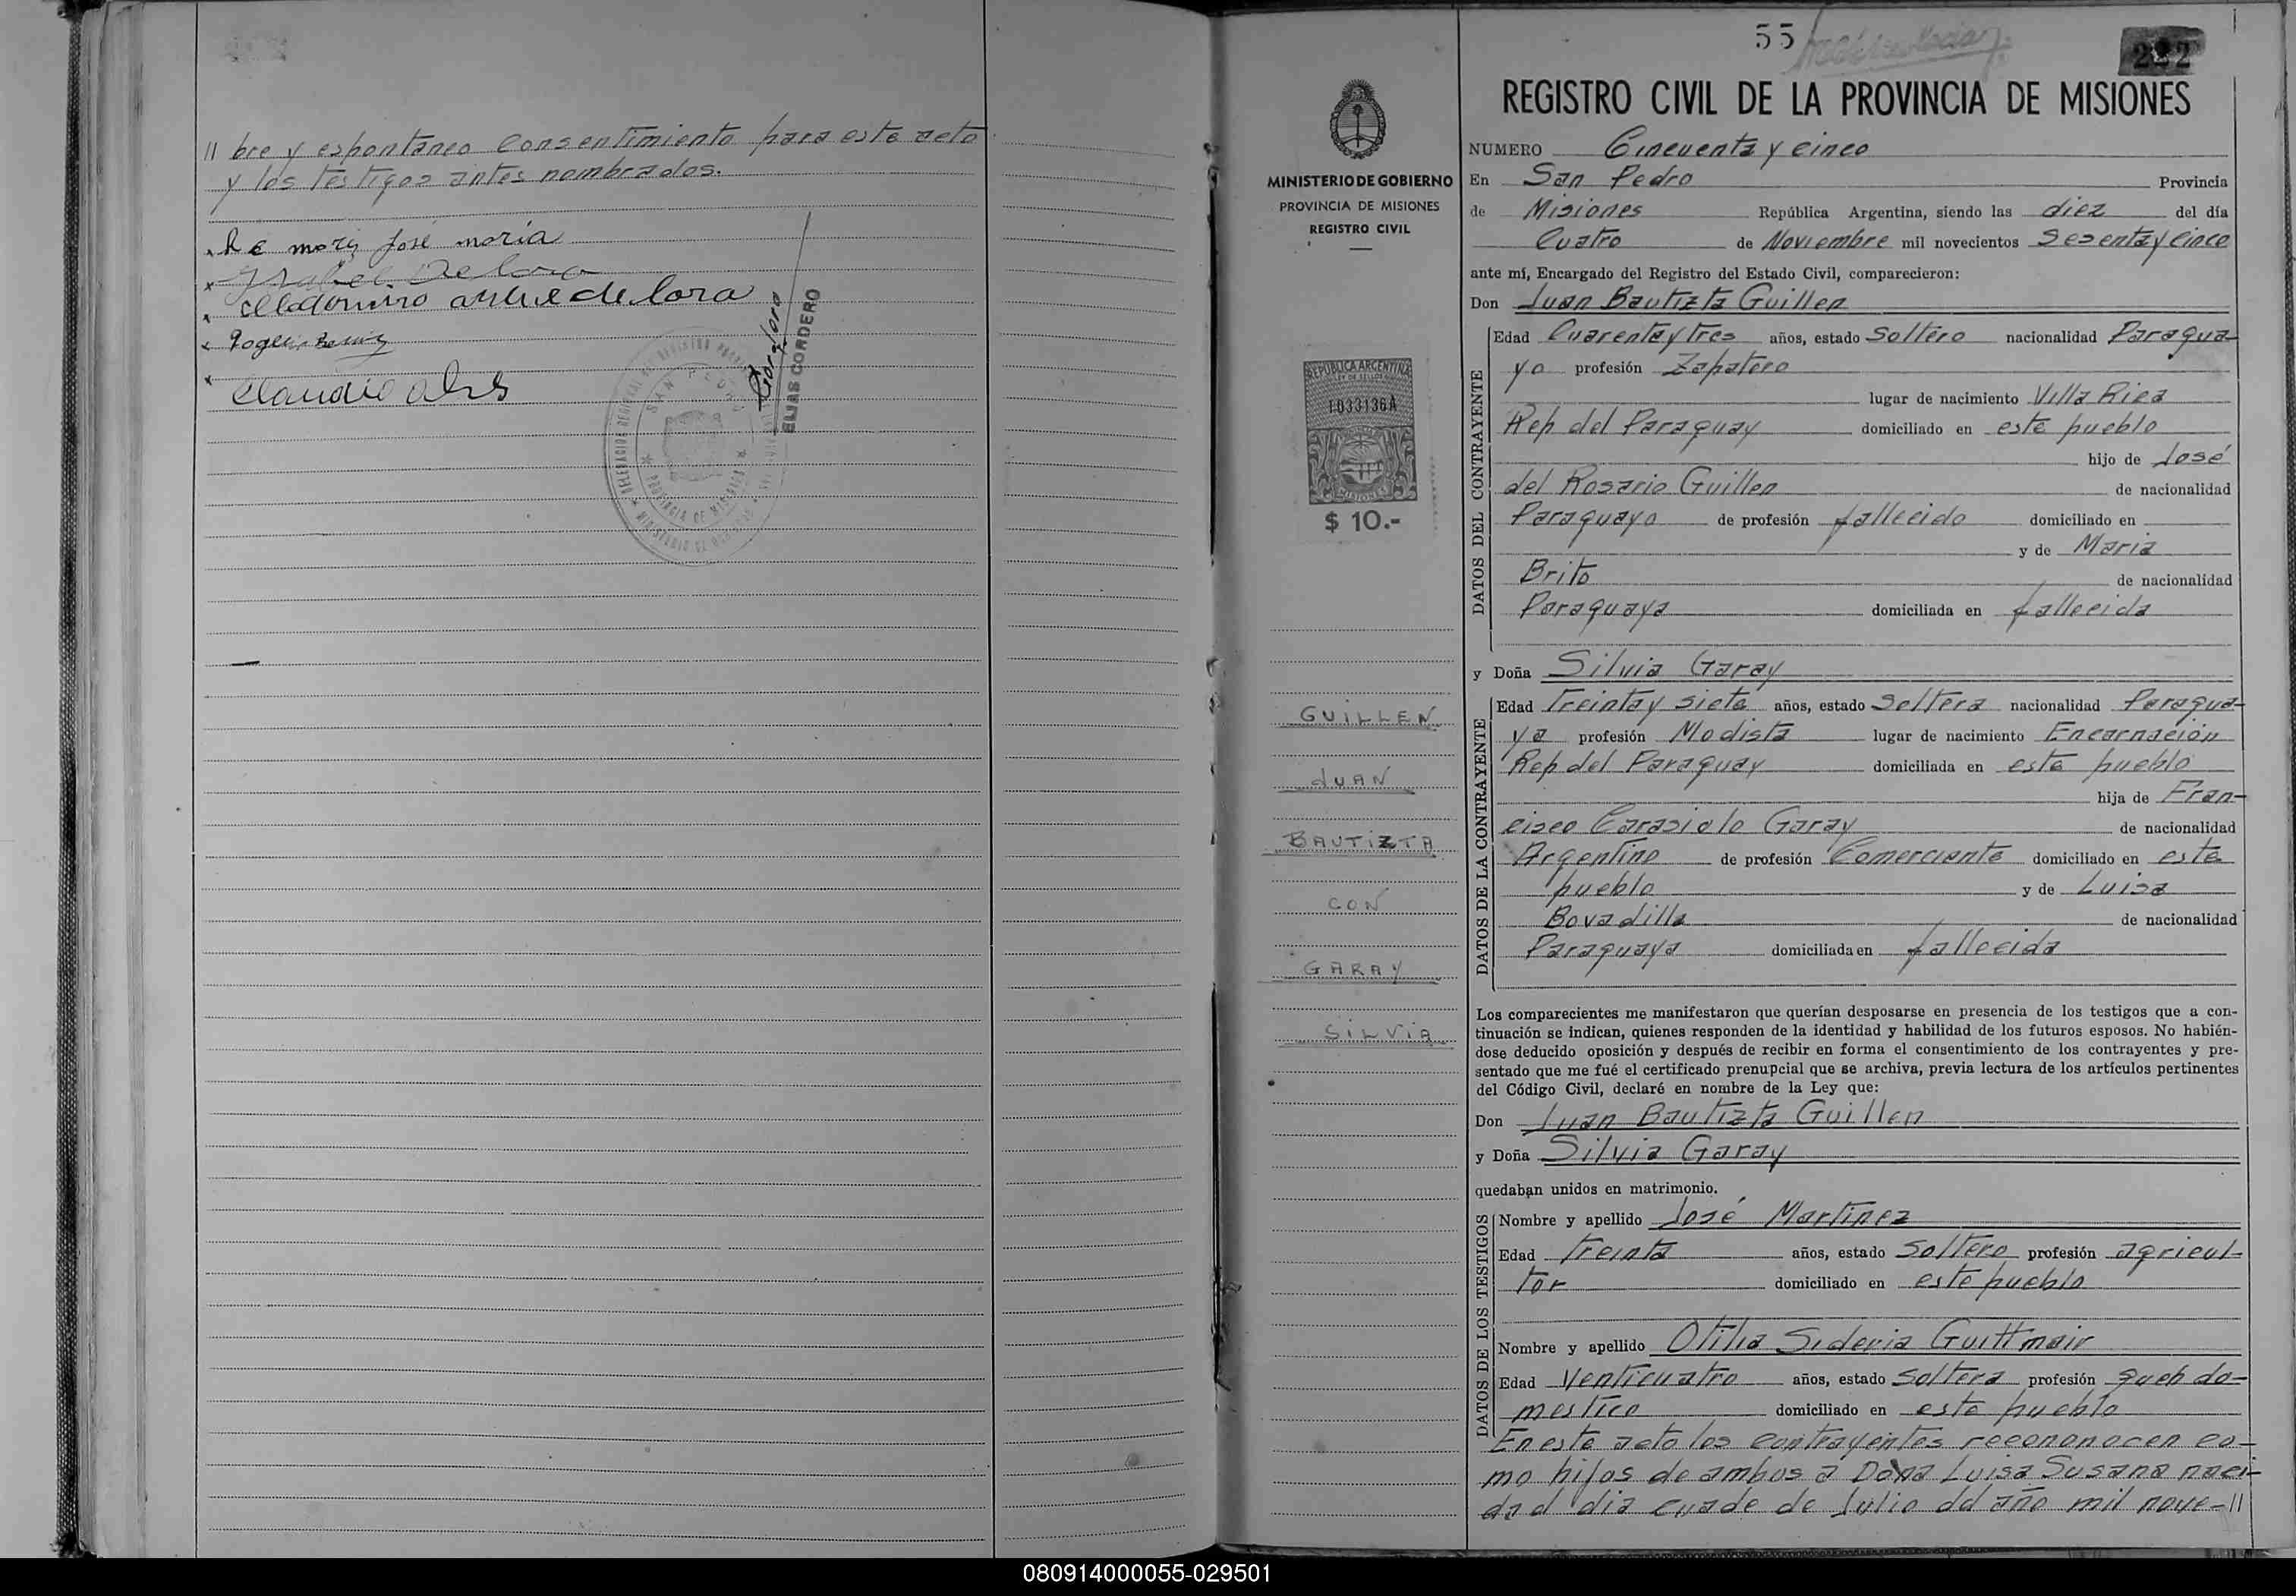 // bre y espontáneo consentimiento para este acto
y los testigos antes nombrados.
José maria
Isabel De Lara
de lara
Rogelio
Claudio
ELIAS CORDERO
SAN PEDRO
PROVINCIA DE MISIONES
MINISTERIO DE GOBIERNO
PROVINCIA DE MISIONES
REGISTRO CIVIL
REPUBLICA ARGENTINA
LEY DE SELLOS
1033136A
MISIONES
$ 10.-
GUILLEN
JUAN
BAUTIZTA
CON
GARAY
SILVIA
55
222
REGISTRO CIVIL DE LA PROVINCIA DE MISIONES
NUMERO Cincuenta y cinco
En San Pedro Provincia
de Misiones República Argentina, siendo las diez del día
Cuatro de Noviembre mil novecientos Sesenta y cinco
ante mí, Encargado del Registro del Estado Civil, comparecieron:
Don Juan Bautizta Guillen
DATOS DEL CONTRAYENTE
Edad Cuarenta y tres años, estado Soltero nacionalidad Paragua-
yo profesión Zapatero
lugar de nacimiento Villa Rica
Rep del Paraguay domiciliado en este pueblo
hijo de José
del Rosario Guillen de nacionalidad
Paraguayo de profesión fallecido domiciliado en
y de Maria
Brito de nacionalidad
Paraguaya domiciliada en fallecida
y Doña Silvia Garay
DATOS DE LA CONTRAYENTE
Edad Treinta y siete años, estado Soltera nacionalidad Paragua-
ya profesión Modista lugar de nacimiento Encarnación
Rep del Paraguay domiciliada en este pueblo
hija de Fran-
cisco Carasiolo Garay de nacionalidad
Argentino de profesión Comerciante domiciliado en este
pueblo y de Luisa
Bovadilla de nacionalidad
Paraguaya domiciliada en fallecida
Los comparecientes me manifestaron que querían desposarse en presencia de los testigos que a con-
tinuación se indican, quienes responden de la identidad y habilidad de los futuros esposos. No habién-
dose deducido oposición y después de recibir en forma el consentimiento de los contrayentes y pre-
sentado que me fué el certificado prenupcial que se archiva, previa lectura de los artículos pertinentes
del Código Civil, declaré en nombre de la Ley que:
Don Juan Bautizta Guillen
y Doña Silvia Garay
quedaban unidos en matrimonio.
DATOS DE LOS TESTIGOS
Nombre y apellido José Martinez
Edad Treinta años, estado Soltero profesión agricul-
tor domiciliado en este pueblo
Nombre y apellido Otilia Sideria Guittmair
Edad Venticuatro años, estado Soltera profesión queh do-
mestico domiciliado en este pueblo
En este acto los contrayentes reconanocen co-
mo hijos de ambos a Doña Luisa Susana naci-
da el dia de Julio del año mil nove-//
080914000055-029501